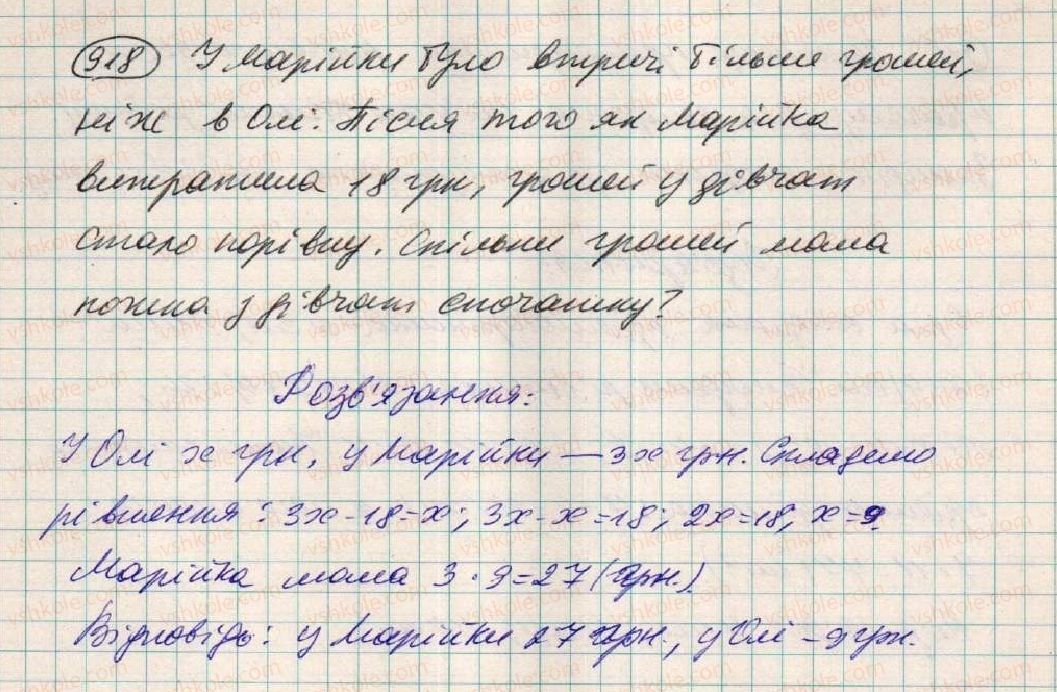 918 У Марійки було втричі більше грошей,
ніж в Олі. Після того як Марійка
витратила 18 грн, грошей у дівчат
стало порівну. Скільки грошей мала
кожна з дівчат спочатку?
Розв'язання:
У Олі x грн, у Марійки — 3x грн. Складемо
рівняння: 3x - 18 = x; 3x - x = 18; 2x = 18, x = 9.
Марійка мала 3 · 9 = 27 (грн.).
Відповідь: у Марійки 27 грн., у Олі - 9 грн.